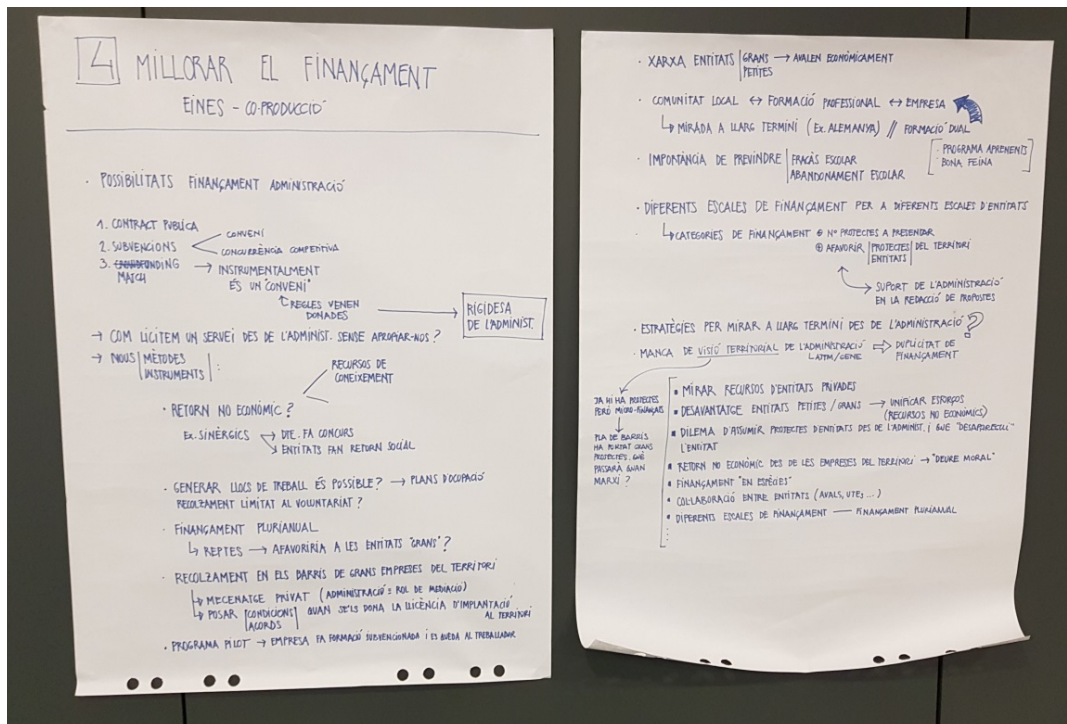 4 MILLORAR EL FINANÇAMENT
EINES - CO-PRODUCCIÓ
· POSSIBILITATS FINANÇAMENT ADMINISTRACIÓ
1. CONTRACT PÚBLICA
2. SUBVENCIONS
CONVENI
CONCURRÈNCIA COMPETITIVA
3. CROWDFUNDING → INSTRUMENTALMENT
MATCH
ÉS UN "CONVENI"
REGLES VENEN
DONADES
→ RIGIDESA
DE L'ADMINIST.
→ COM LICITEM UN SERVEI DES DE L'ADMINIST. SENSE APROPIAR-NOS?
→ NOUS | MÈTODES
INSTRUMENTS | :
RECURSOS DE
CONEIXEMENT
· RETORN NO ECONÒMIC?
Ex. SINÈRGICS → DTE. FA CONCURS
→ ENTITATS FAN RETORN SOCIAL
· GENERAR LLOCS DE TREBALL ÉS POSSIBLE? → PLANS D'OCUPACIÓ
RECOLZAMENT LIMITAT AL VOLUNTARIAT?
· FINANÇAMENT PLURIANUAL
↳ REPTES → AFAVORIRIA A LES ENTITATS "GRANS"?
· RECOLZAMENT EN ELS BARRIS DE GRANS EMPRESES DEL TERRITORI
↳ MECENATGE PRIVAT (ADMINISTRACIÓ = ROL DE MEDIACIÓ)
↳ POSAR | CONDICIONS | QUAN SE'LS DONA LA LLICÈNCIA D'IMPLANTACIÓ
ACORDS
AL TERRITORI
· PROGRAMA PILOT → EMPRESA FA FORMACIÓ SUBVENCIONADA I ES QUEDA AL TREBALLADOR
· XARXA ENTITATS | GRANS → AVALEN ECONÒMICAMENT
PETITES
· COMUNITAT LOCAL ↔ FORMACIÓ PROFESSIONAL ↔ EMPRESA
↳ MIRADA A LLARG TERMINI (Ex. ALEMANYA) // FORMACIÓ DUAL
[· PROGRAMA APRENENTS
· BONA FEINA]
· IMPORTÀNCIA DE PREVINDRE | FRACÀS ESCOLAR
ABANDONAMENT ESCOLAR
· DIFERENTS ESCALES DE FINANÇAMENT PER A DIFERENTS ESCALES D'ENTITATS
↳ CATEGORIES DE FINANÇAMENT ⊕ Nº PROJECTES A PRESENTAR
⊕ AFAVORIR | PROJECTES | DEL TERRITORI
ENTITATS |
SUPORT DE L'ADMINISTRACIÓ
EN LA REDACCIÓ DE PROPOSTES
· ESTRATÈGIES PER MIRAR A LLARG TERMINI DES DE L'ADMINISTRACIÓ?
· MANCA DE VISIÓ TERRITORIAL DE L'ADMINISTRACIÓ ⇒ DUPLICITAT DE
FINANÇAMENT
JA HI HA PROJECTES
PERÒ MICRO-FINANÇATS
PLA DE BARRIS
HA PORTAT GRANS
PROJECTES. QUÈ
PASSARÀ QUAN
MARXI?
▪ MIRAR RECURSOS D'ENTITATS PRIVADES
▪ DESAVANTATGE ENTITATS PETITES / GRANS → UNIFICAR ESFORÇOS
(RECURSOS NO ECONÒMICS)
▪ DILEMA D'ASSUMIR PROJECTES D'ENTITATS DES DE L'ADMINIST. I QUE "DESAPAREIXI"
L'ENTITAT
▪ RETORN NO ECONÒMIC DES DE LES EMPRESES DEL TERRITORI → "DEURE MORAL"
▪ FINANÇAMENT "EN ESPÈCIES"
▪ COL·LABORACIÓ ENTRE ENTITATS (AVALS, UTE, ...)
▪ DIFERENTS ESCALES DE FINANÇAMENT — FINANÇAMENT PLURIANUAL